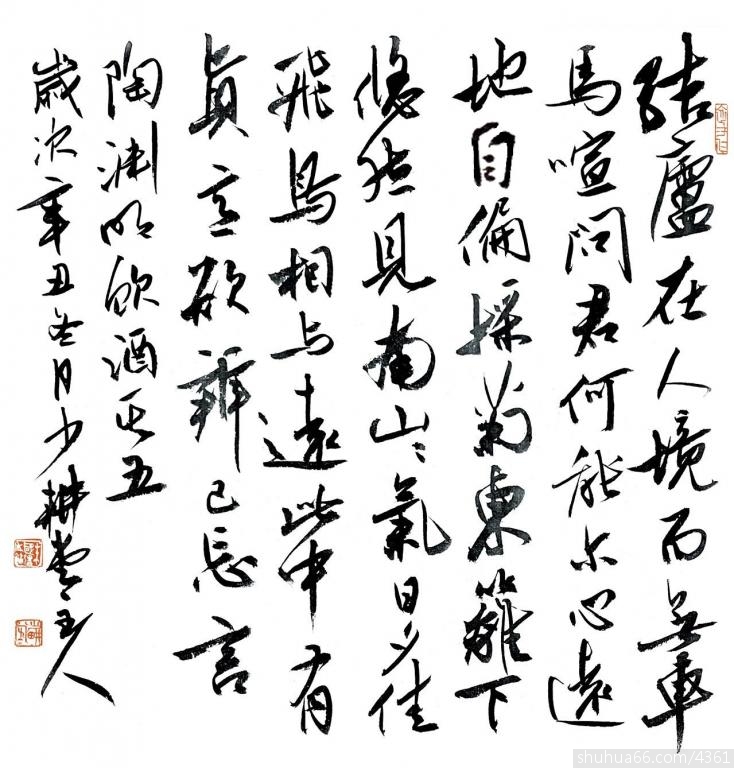 結廬在人境而無車
馬喧問君何能尔心遠
地自偏採菊東籬下
悠然見南山〻氣日夕佳
飛鳥相与遠此中有
真意欲辨已忘言
陶淵明飲酒其五
歲次辛丑冬月少耕堂主人
shuhua66.com/4361